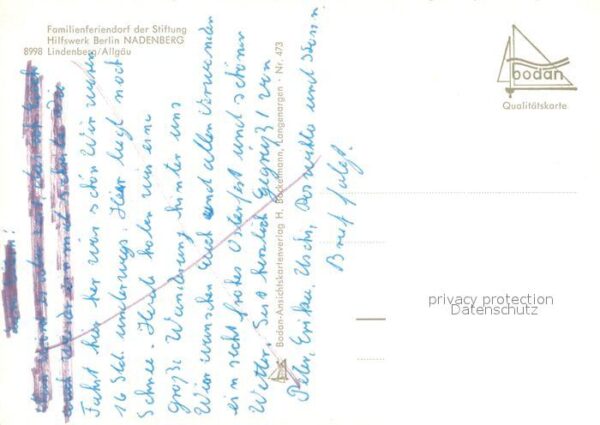 Familienferiendorf der Stiftung
Hilfswerk Berlin NADENBERG
8998 Lindenberg/Allgäu
bodan
Qualitätskarte
Fahrt hier her war schön Wir waren
16 Std. unterwegs. Hier liegt noch
Schnee. Heute haben wir eine
große Wanderung hinter uns
Wir wünschen Euch und allen
ein recht frohes Osterfest und schönes
Wetter. Seit herzlich Gegrüßt von
Peter, Erika, Uschi, und
Brief folgt.
Bodan-Ansichtskartenverlag H. Bockelmann, Langenargen · Nr. 473
privacy protection
Datenschutz